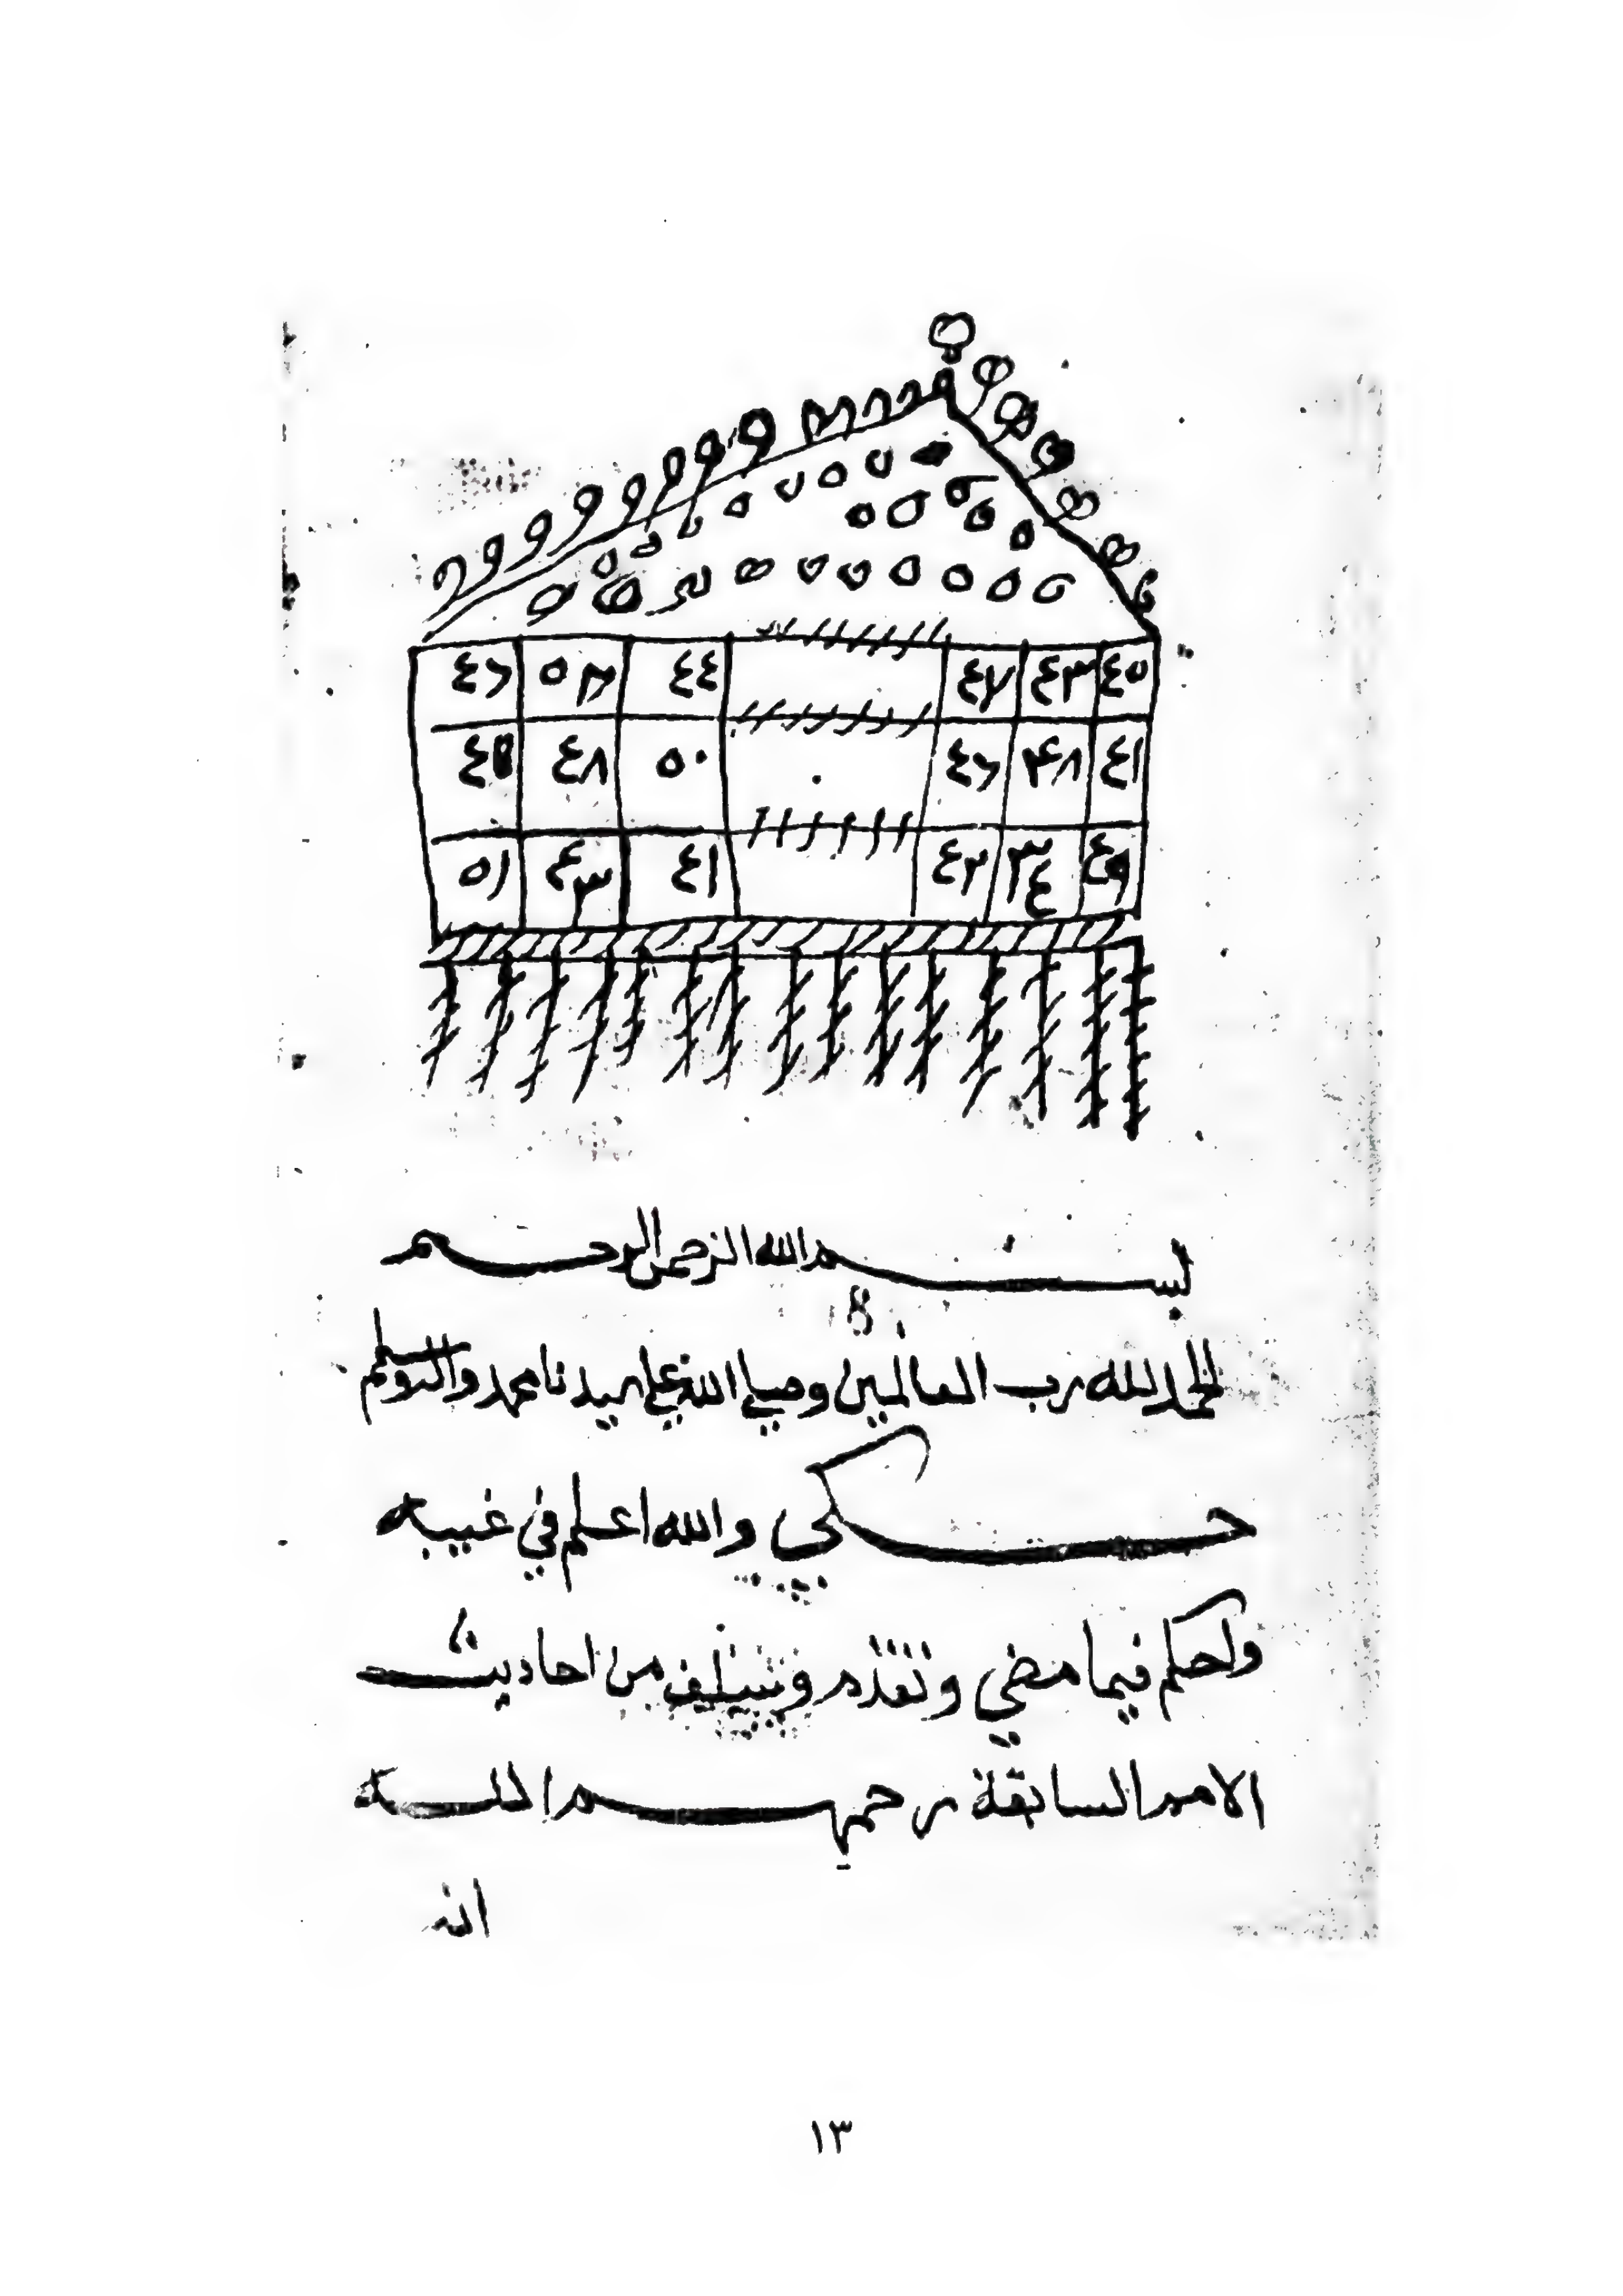 ٤٦ ٥٣ ٤٤ ٤٧ ٤٣ ٤٥
٤٨ ٥٠ ٤٦ ٤٨ ٤١
٥١ ٤٣ ٤١ ٤٢ ٣٤ ٤٩
بسم الله الرحمن الرحيم
الحمد لله رب العالمين وصلي الله علي سيدنا محمد واله وسلم
حكي والله اعلم في غيبه
واحكم فيما مضي وتقدم من احاديث
الامم السابقة رحمهم الله
انه
١٣